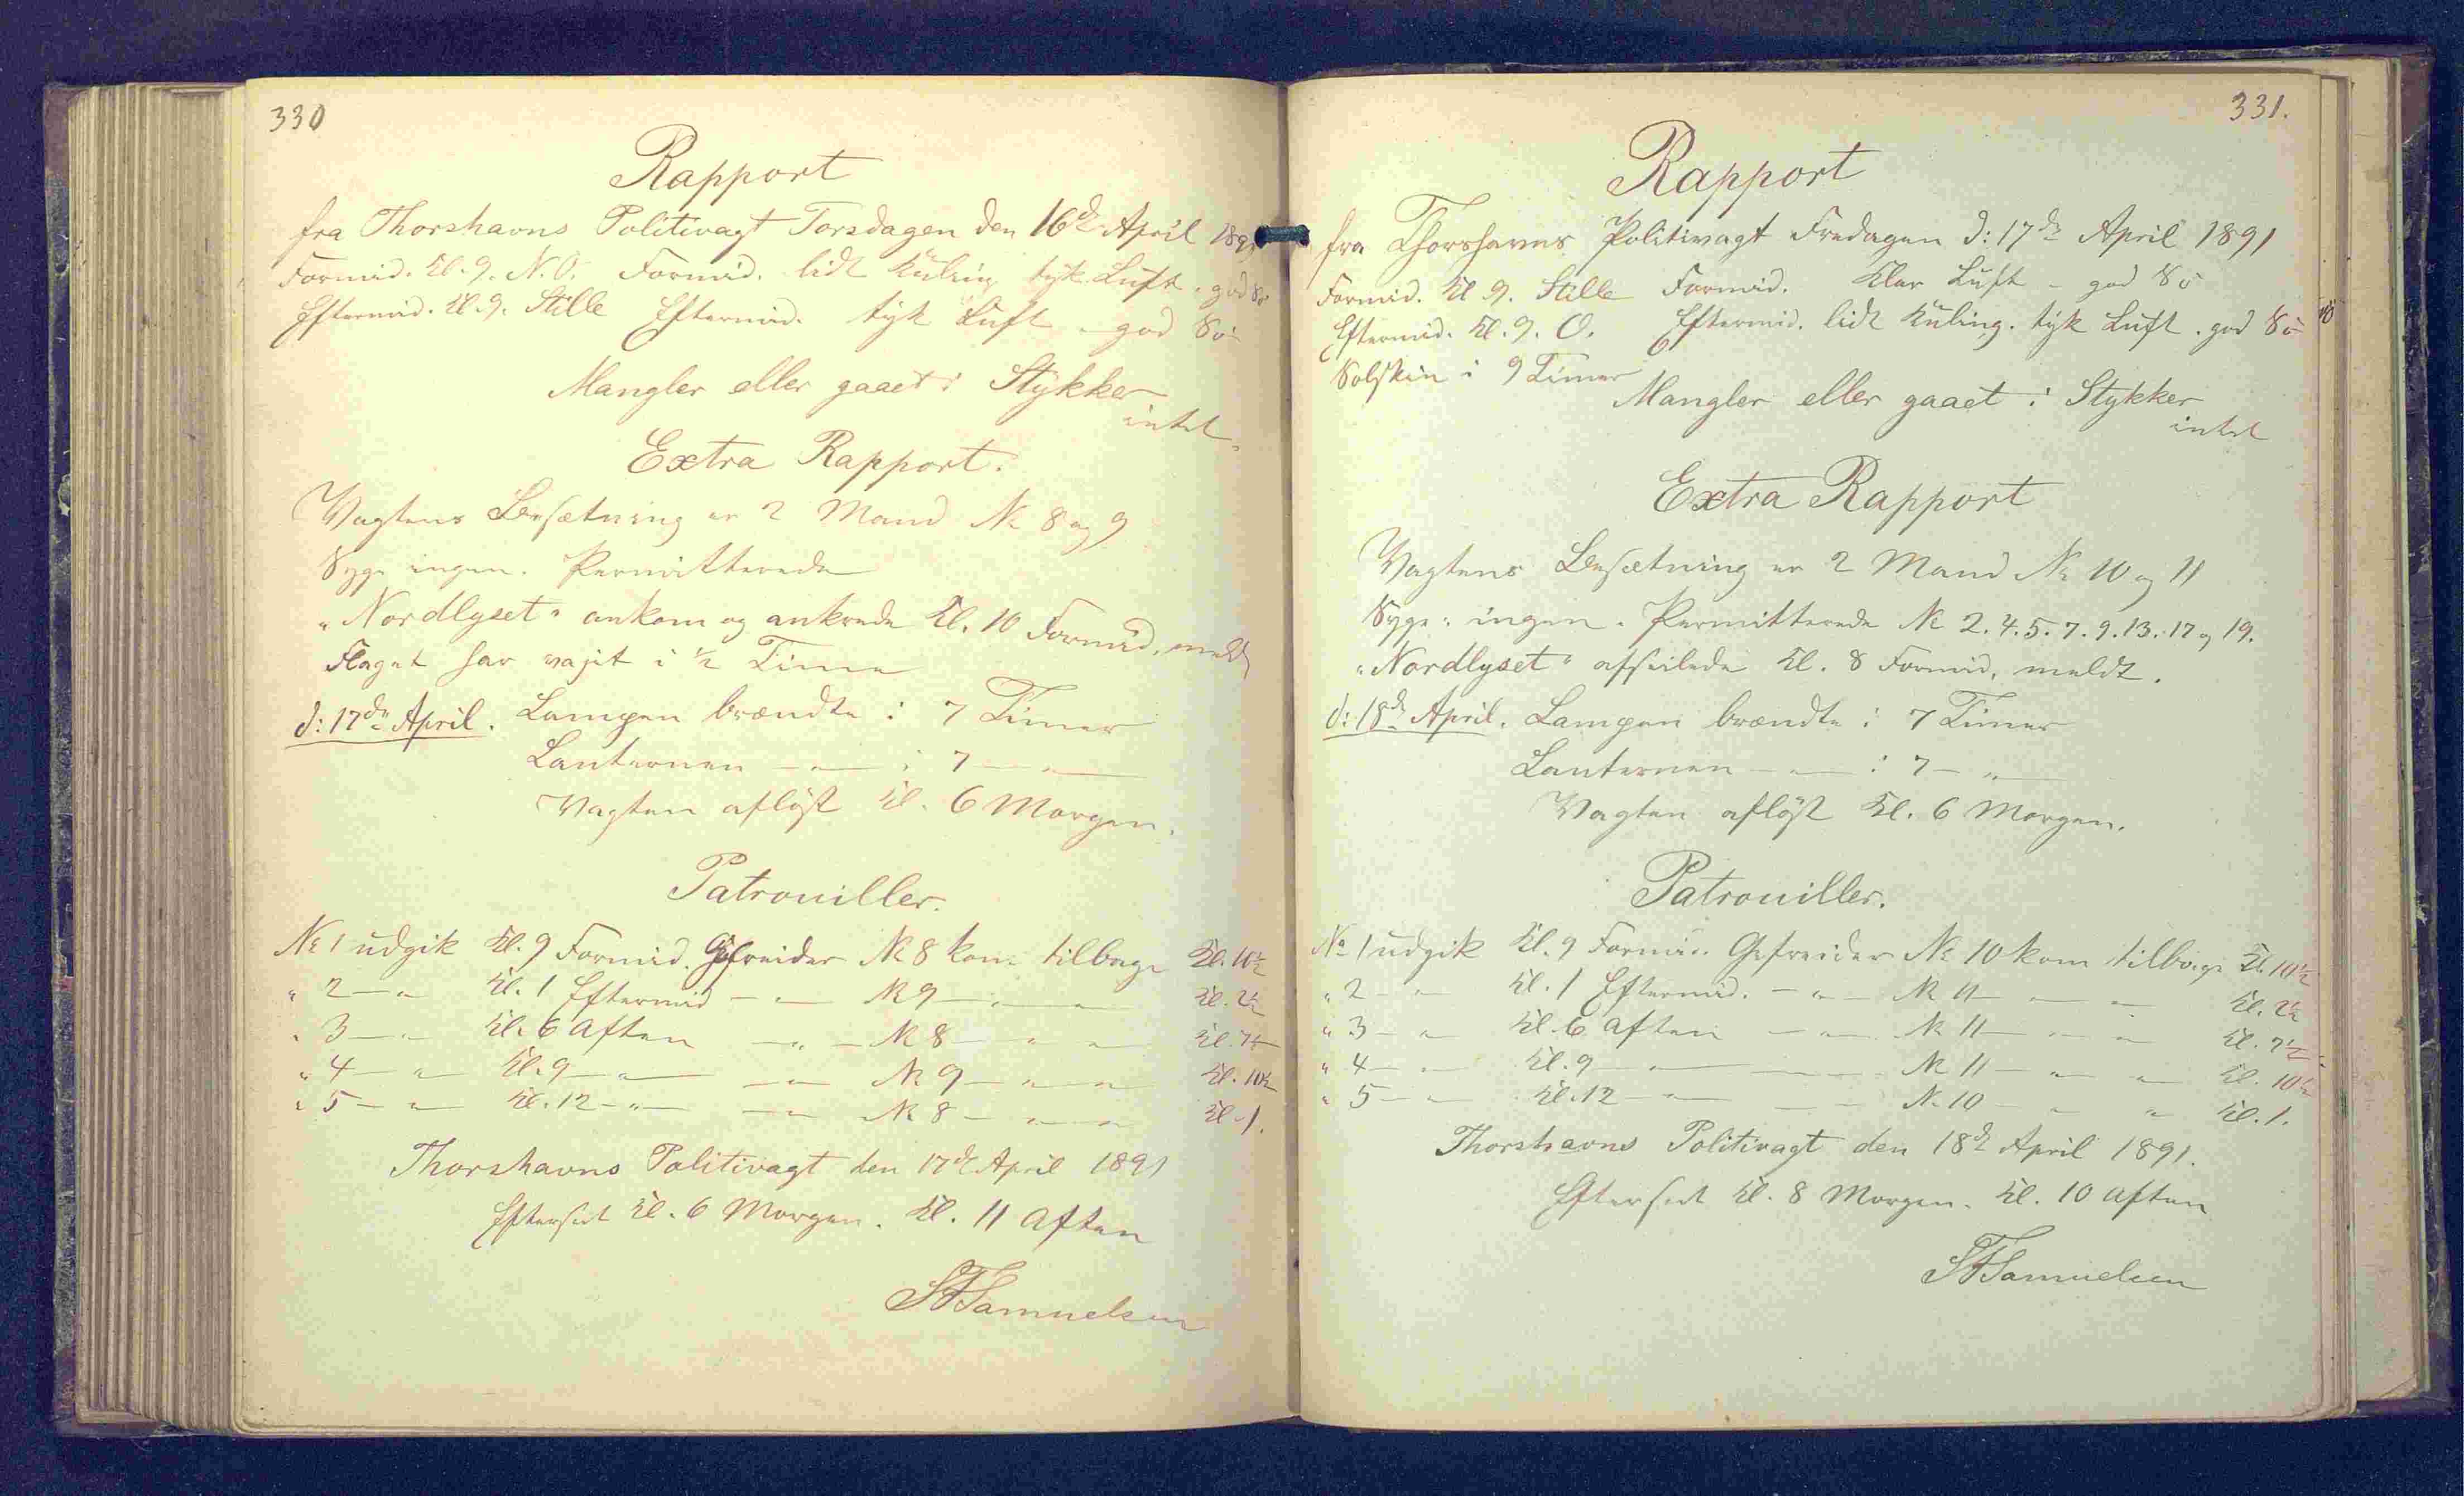 330
Rapport
fra Thorshavns Politivagt Torsdagen den 16de April 1891
Formid. Kl. 9. N.O. Formid. lidt Kuling tyk Luft. god Sö
Eftermid. Kl. 9. Stille Eftermid. tyk Luft - god Sö
Mangler eller gaaet i Stykker
intet.
Extra Rapport.
Vagtens Besætning er 2 Mand No 8 og 9
Syge ingen. Permitterede
"Nordlyset" ankom og ankrede Kl. 10 Formid. meldt
Flaget har vajet i ½ Time
d: 17de April. Lampen brændte i 7 Timer
Lanternen — " — i 7 — " —
Vagten aflöst Kl. 6 Morgen.
Patrouiller.
No 1 udgik Kl. 9 Formid. Gefreider No 8 kom tilbage Kl. 10½
" 2 — " Kl. 1 Eftermid — " — No 9 — " — " Kl. 2½
" 3 — " Kl. 6 Aften — " — No 8 — " — " Kl. 7½
" 4 — " Kl. 9 — " — — " No 9 — " — " Kl. 10½
" 5 — " Kl. 12 — " — — " No 8 — " — " Kl. 1.
Thorshavns Politivagt den 17de April 1891
Efterseet Kl. 6 Morgen. Kl. 11 Aften
Samuelsen
331.
Rapport
fra Thorshavns Politivagt Fredagen d: 17de April 1891
Formid. Kl 9. Stille Formid. Klar Luft - god Sö
Eftermid. Kl. 9. O. Eftermid. lidt Kuling. tyk Luft. god Sö
Solskin i 9 Timer
Mangler eller gaaet i Stykker
intet
Extra Rapport
Vagtens Besætning er 2 Mand No 10 og 11
Syge: ingen. Permitterede No 2. 4. 5. 7. 9. 13. 17 og 19.
"Nordlyset" afseilede Kl. 8 Formid. meldt.
d: 18de April. Lampen brændte i 7 Timer
Lanternen — " — i 7 — " —
Vagten aflöst Kl. 6 Morgen.
Patrouiller.
No 1 udgik Kl. 9 Formid. Gefreider No 10 kom tilbage Kl. 10½
" 2 — " Kl. 1 Eftermid. — " — No 11 — " — " Kl. 2½
" 3 — " Kl. 6 Aften — " — No 11 — " — " Kl. 7½
" 4 — " Kl. 9 — " — — " — No 11 — " — " Kl. 10½
" 5 — " Kl. 12 — " — — " — No 10 — " — " Kl. 1.
Thorshavns Politivagt den 18de April 1891.
Efterseet Kl. 8 Morgen. Kl. 10 Aften
Samuelsen